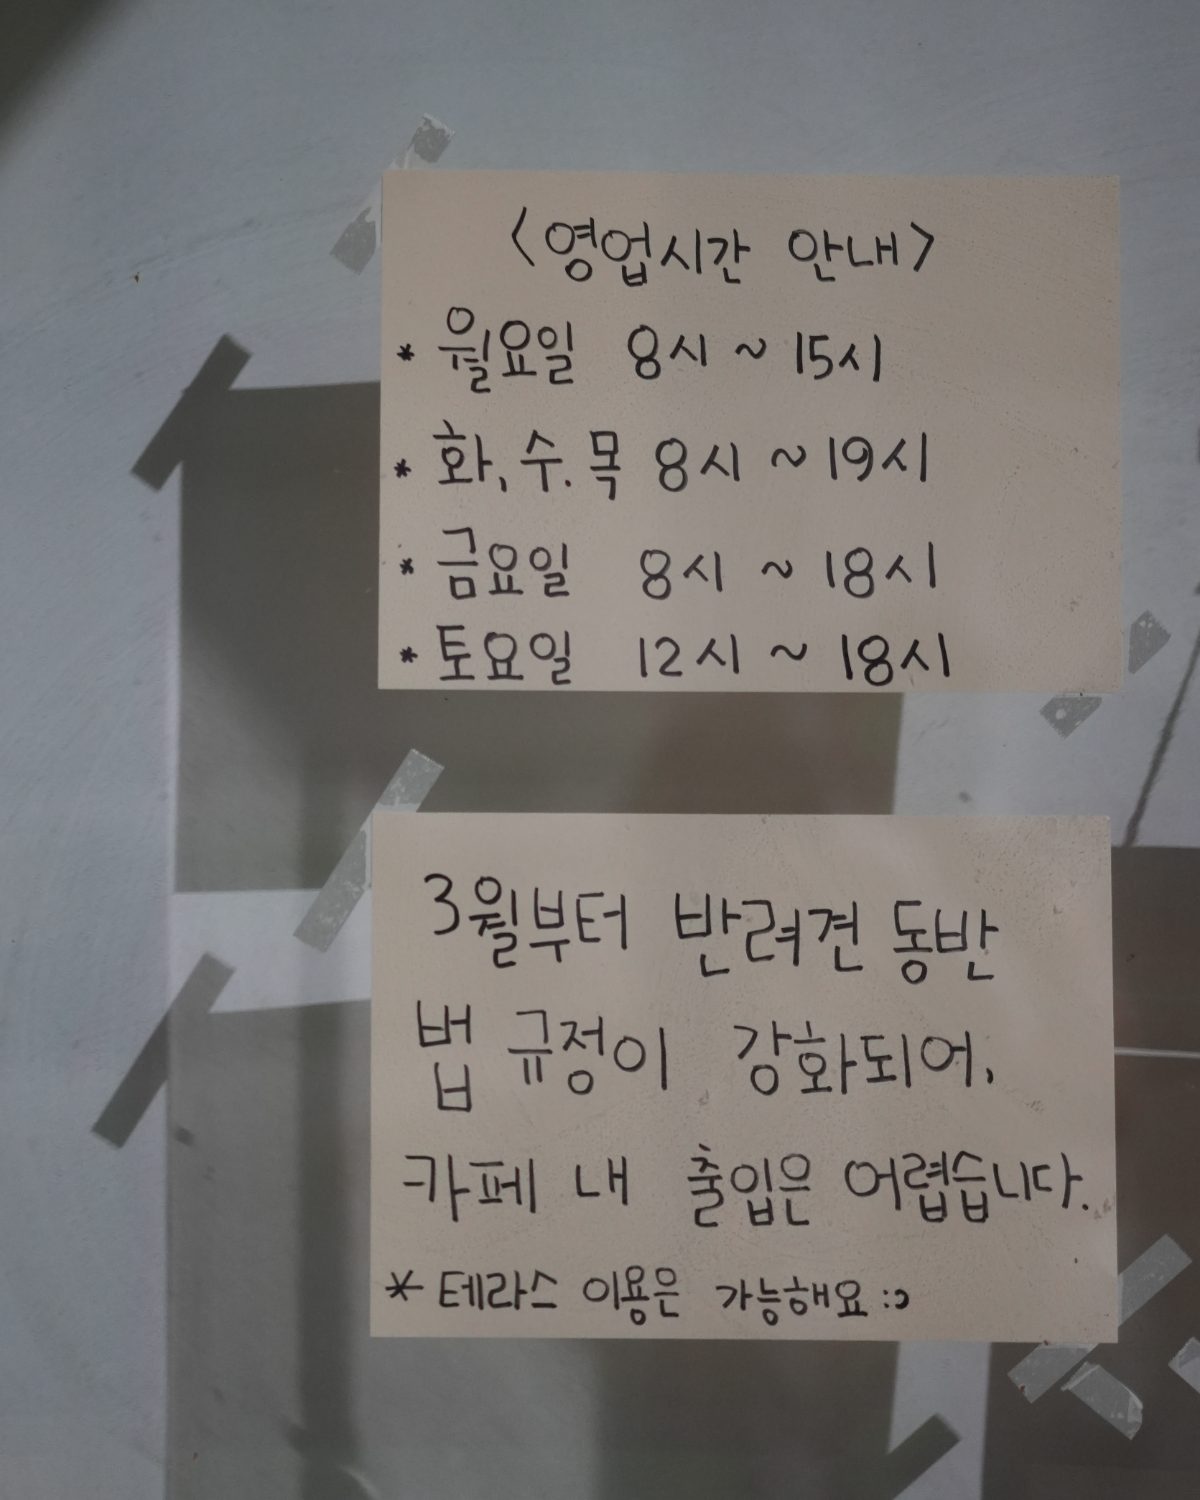 <영업시간 안내>
* 월요일 8시 ~ 15시
* 화, 수. 목 8시 ~ 19시
* 금요일 8시 ~ 18시
* 토요일 12시 ~ 18시
3월부터 반려견 동반
법 규정이 강화되어,
카페 내 출입은 어렵습니다.
* 테라스 이용은 가능해요 :כ